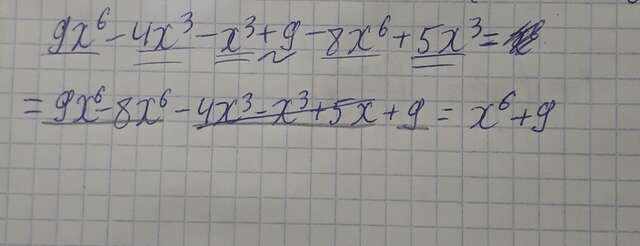 9x⁶ - 4x³ - x³ + 9 - 8x⁶ + 5x³ =
= 9x⁶ - 8x⁶ - 4x³ - x³ + 5x + 9 = x⁶ + 9